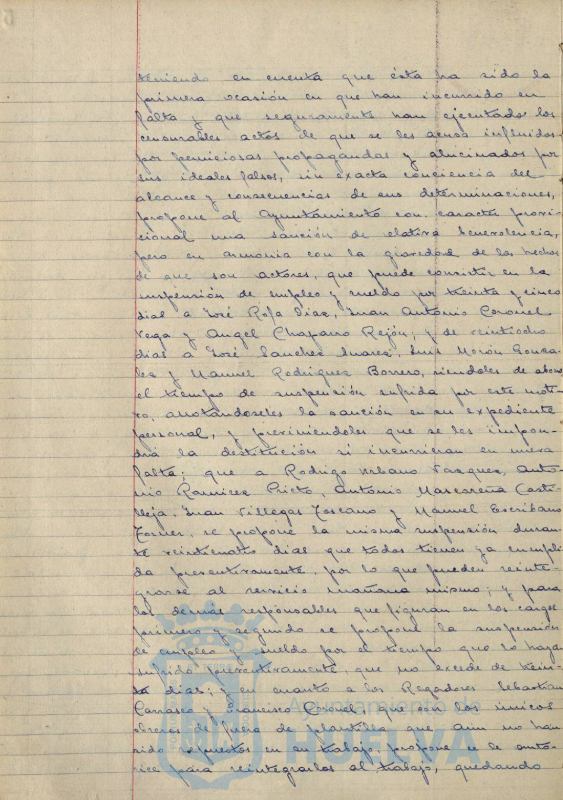 teniendo en cuenta que ésta ha sido la
primera ocasión en que han incurrido en
falta y que seguramente han ejecutado los
censurables actos de que se les acusa influidos
por perniciosas propagandas y alucinados por
sus ideales falsos, sin exacta conciencia del
alcance y consecuencias de sus determinaciones,
propone al Ayuntamiento con caracter provi-
cional una sanción de relativa benevolencia,
pero en armonia con la gravedad de los hechos
de que son actores, que puede consistir en la
suspensión de empleo y sueldo por treinta y cinco
dias a José Rofa Diaz, Juan Antonio Coronel
Vega y Angel Chaparro Rejón; y de veintiocho
dias a José Sanchez Suarez, Luis Morón Gonza-
lez y Manuel Rodriguez Borrero, siendoles de abono
el tiempo de suspensión sufrida por este moti-
vo, anotándoseles la sanción en su expediente
personal, y previniendoles que se les impon-
drá la destitución si incurrieran en nueva
falta; que a Rodrigo Urbano Vazquez, Anto-
nio Ramirez Prieto, Antonio Mascareña Casti-
lleja, Juan Villegas Toscano y Manuel Escribano
Forner, se propone la misma suspensión duran-
te veinticuatro dias que todos tienen ya cumpli-
da preventivamente, por lo que pueden reinte-
grarse al servicio mañana mismo; y para
los demás responsables que figuran en los cargos
primero y segundo se propone la suspensión
de empleo y sueldo por el tiempo que lo hayan
sufrido preventivamente, que no excede de trein-
ta dias; y en cuanto a los Regadores Sebastian
Carrasco y Francisco Coronel, que son los unicos
obreros de fuera de plantilla que aun no han
sido repuestos en su trabajo, propone se le auto-
rice para reintegrarlos al trabajo, quedando
Ayuntamiento
HUELVA